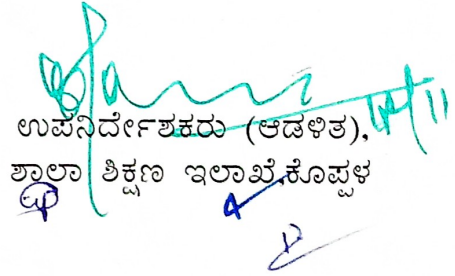 ಉಪನಿರ್ದೇಶಕರು (ಆಡಳಿತ),
ಶಾಲಾ ಶಿಕ್ಷಣ ಇಲಾಖೆ,ಕೊಪ್ಪಳ